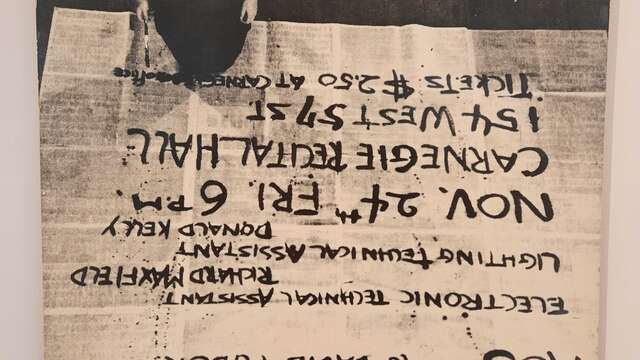 DAVID
ELECTRONIC TECHNICAL ASSISTANT
RICHARD MAXFIELD
LIGHTING TECHNICAL ASSISTANT
DONALD KELLY
NOV. 24TH FRI. 6 P.M.
CARNEGIE RECITAL HALL
154 WEST 57 ST.
TICKETS $2.50 AT CARNEGIE office